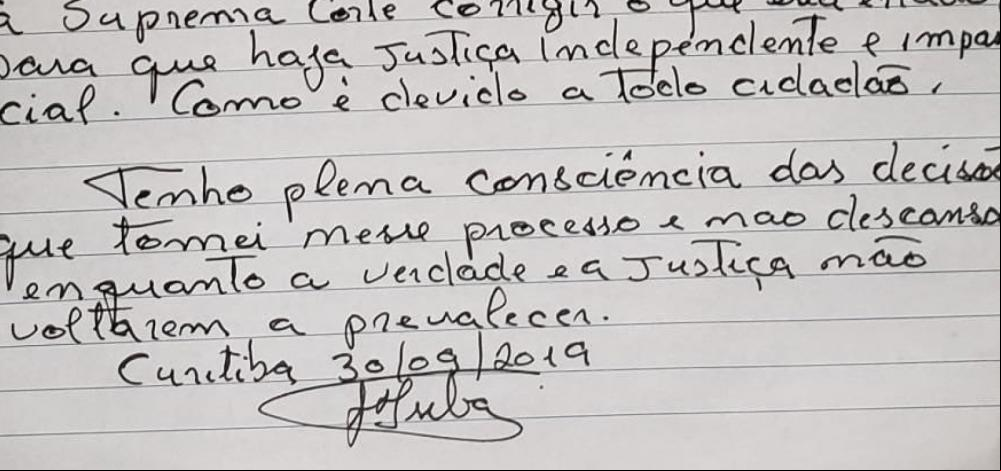 a Suprema Corte corrigir o que
para que haja Justiça independente e impar
cial. Como é devido a todo cidadão.
Tenho plena consciência das decisõe
que tomei nesse processo e não descanso
enquanto a verdade e a Justiça não
voltarem a prevalecer.
Curitiba 30/09/2019